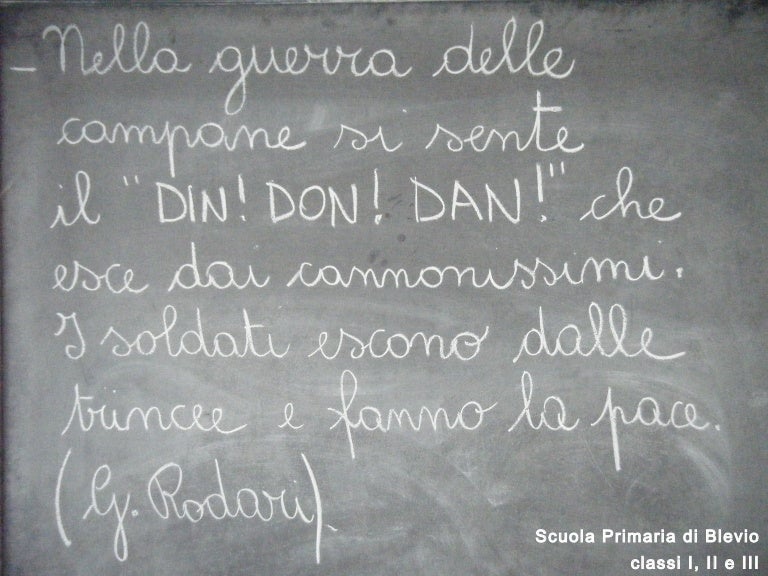 – Nella guerra delle
campane si sente
il "DIN! DON! DAN!" che
esce dai cannonissimi.
I soldati escono dalle
trincee e fanno la pace.
(G. Rodari).
Scuola Primaria di Blevio
classi I, II e III